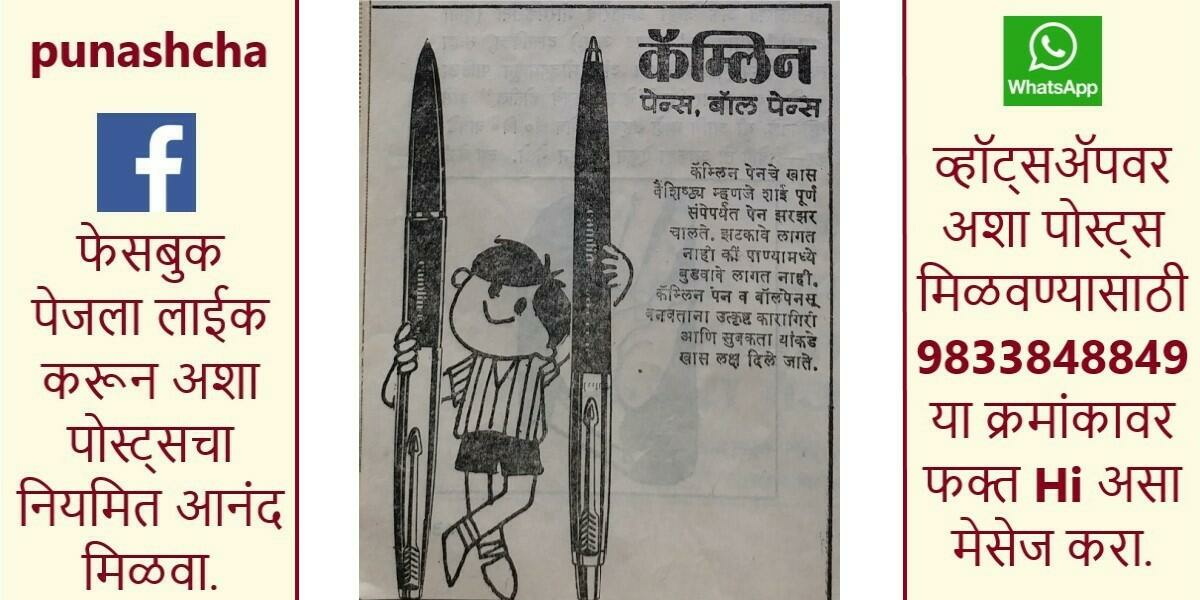 punashcha
फेसबुक
पेजला लाईक
करून अशा
पोस्ट्सचा
नियमित आनंद
मिळवा.
कॅम्लिन
पेन्स, बॉल पेन्स
कॅम्लिन पेनचे खास
वैशिष्ठ्य म्हणजे शाई पूर्ण
संपेपर्यंत पेन झरझर
चालते. झटकावे लागत
नाही कीं पाण्यामध्ये
बुडवावे लागत नाही.
कॅम्लिन पेन व बॉलपेनस्
बनवताना उत्कृष्ट कारागिरी
आणि सुबकता यांकडे
खास लक्ष दिले जाते.
WhatsApp
व्हॉट्सॲपवर
अशा पोस्ट्स
मिळवण्यासाठी
9833848849
या क्रमांकावर
फक्त Hi असा
मेसेज करा.